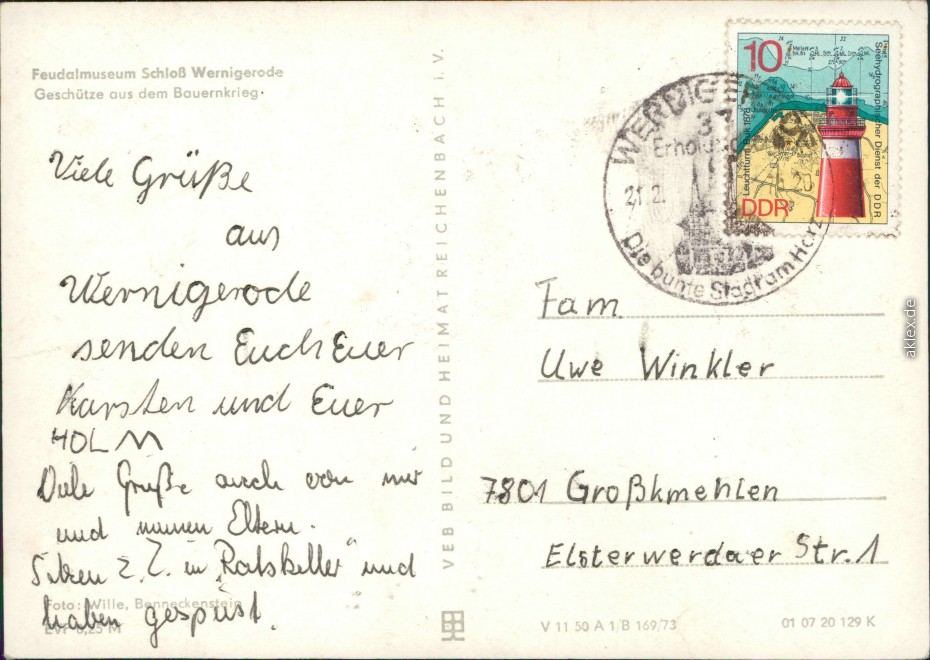 Feudalmuseum Schloß Wernigerode
Geschütze aus dem Bauernkrieg
Viele Grüße
aus
Wernigerode
senden Euch Euer
Karsten und Euer
HOLM
Viele Grüße auch von mir
und meinen Eltern.
Sitzen z. Z. im "Ratskeller" und
haben gespeist.
Foto: Wille, Benneckenstein
EVP 0,25 M
VEB BILD UND HEIMAT REICHENBACH I. V.
WERNIGERODE
3
Erholungs
21.2.
20
Die bunte Stadt am Harz
10
Leuchtturm Buk 1878
Seehydrographischer Dienst der DDR
DDR
Fam
Uwe Winkler
7801 Großkmehlen
Elsterwerdaer Str. 1
V 11 50 A 1/B 169/73
01 07 20 129 K
aklex.de